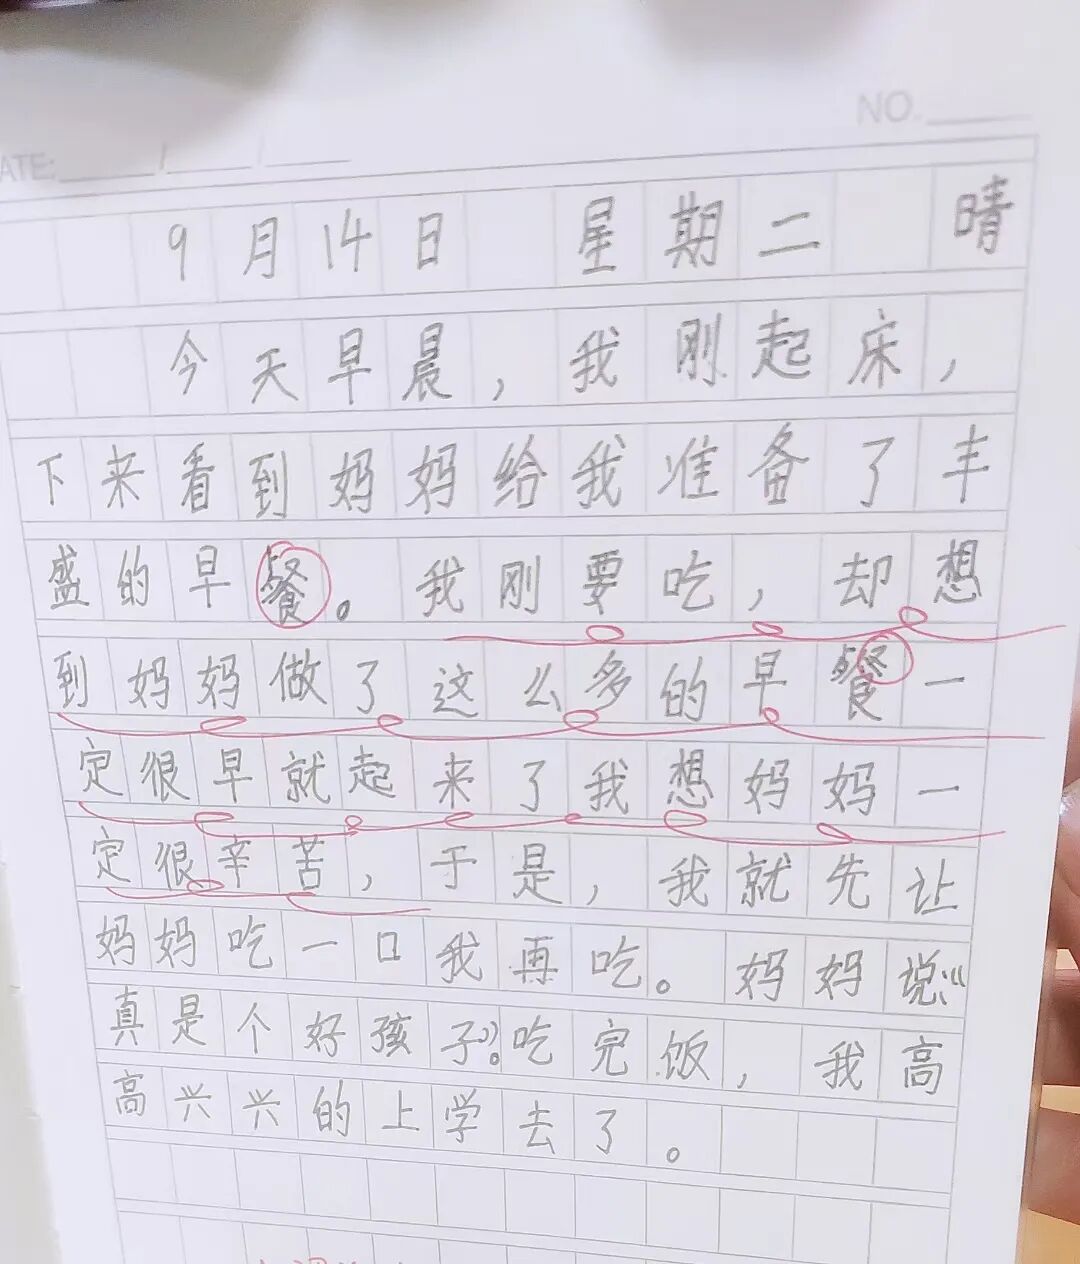 NO.
ATE: / /
9月14日 星期二 晴
今天早晨，我刚起床，
下来看到妈妈给我准备了丰
盛的早餐。我刚要吃，却想
到妈妈做了这么多的早餐一
定很早就起来了我想妈妈一
定很辛苦，于是，我就先让
妈妈吃一口我再吃。妈妈说：“
真是个好孩子”。吃完饭，我高
高兴兴的上学去了。